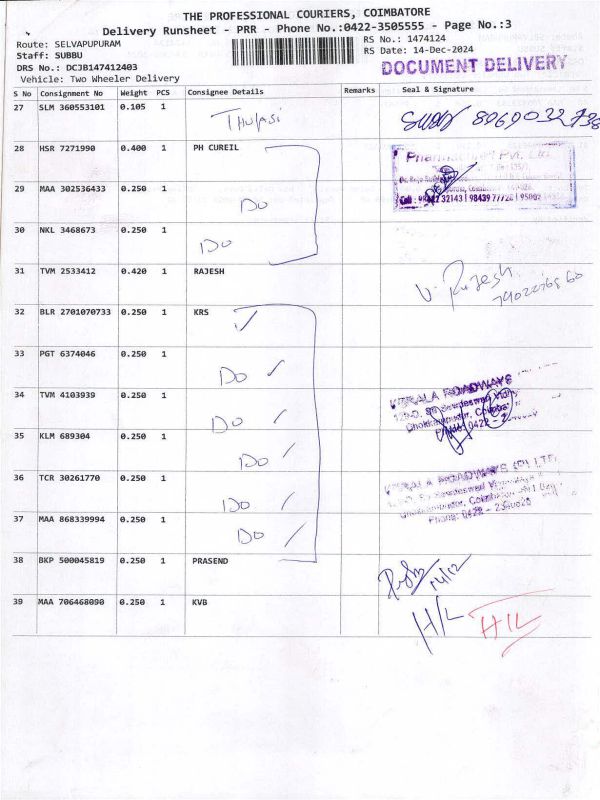 THE PROFESSIONAL COURIERS, COIMBATORE
Delivery Runsheet - PRR - Phone No.:0422-3505555 - Page No.:3
Route: SELVAPUPURAM
RS No.: 1474124
Staff: SUBBU
RS Date: 14-Dec-2024
DRS No.: DCJB147412403
DOCUMENT DELIVERY
Vehicle: Two Wheeler Delivery
S No Consignment No Weight PCS Consignee Details Remarks Seal & Signature
27 SLM 360553101 0.105 1 Thulasi
28 HSR 7271990 0.400 1 PH CUREIL
Pvt. Ltd
29 MAA 302536433 0.250 1 Do
30 NKL 3468673 0.250 1 Do
31 TVM 2533412 0.420 1 RAJESH V. Rajesh
32 BLR 2701070733 0.250 1 KRS
33 PGT 6374046 0.250 1 Do
34 TVM 4103939 0.250 1 Do
KERALA ROADWAYS
35 KLM 689304 0.250 1 Do
36 TCR 30261770 0.250 1 Do
KERALA ROADWAYS (P) LTD
37 MAA 868339994 0.250 1 Do
38 BKP 500045819 0.250 1 PRASEND 14/12
39 MAA 706468090 0.250 1 KVB H/L H/L